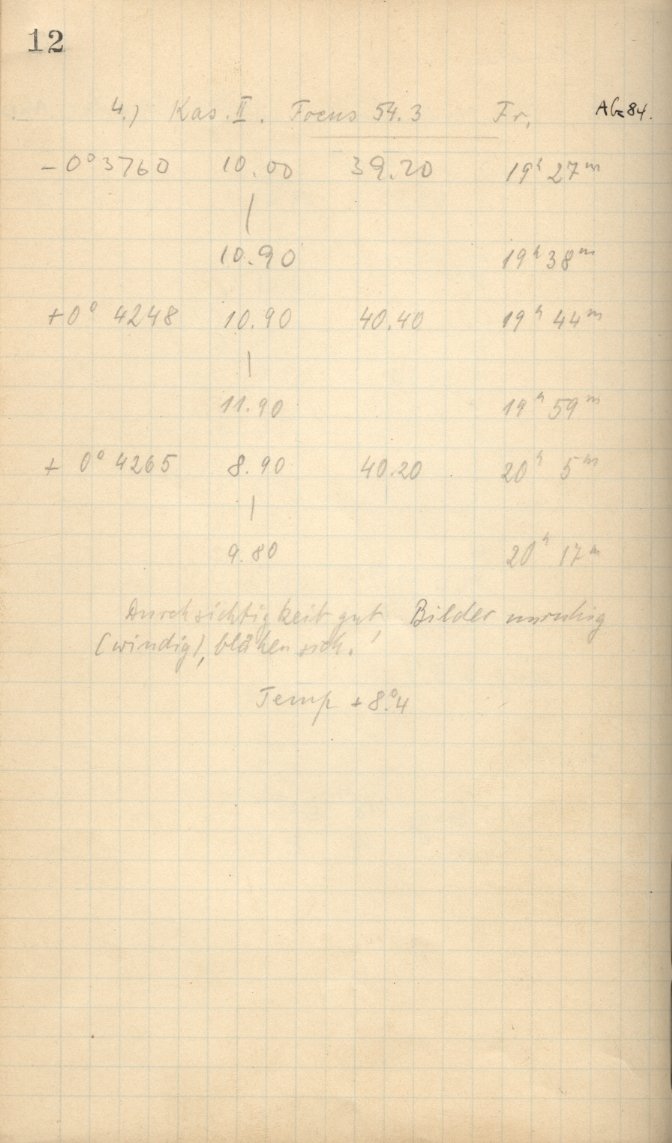 12
4.) Kas. II. Focus 54.3 Fr. Ab 84.
- 0° 3760 10.00 39.20 19ʰ 27ᵐ
|
10.90 19ʰ 38ᵐ
+0° 4248 10.90 40.40 19ʰ 44ᵐ
|
11.90 19ʰ 59ᵐ
+ 0° 4265 8.90 40.20 20ʰ 5ᵐ
|
9.80 20ʰ 17ᵐ
Durchsichtigkeit gut, Bilder unruhig
(windig), blähen sich.
Temp + 8.°4